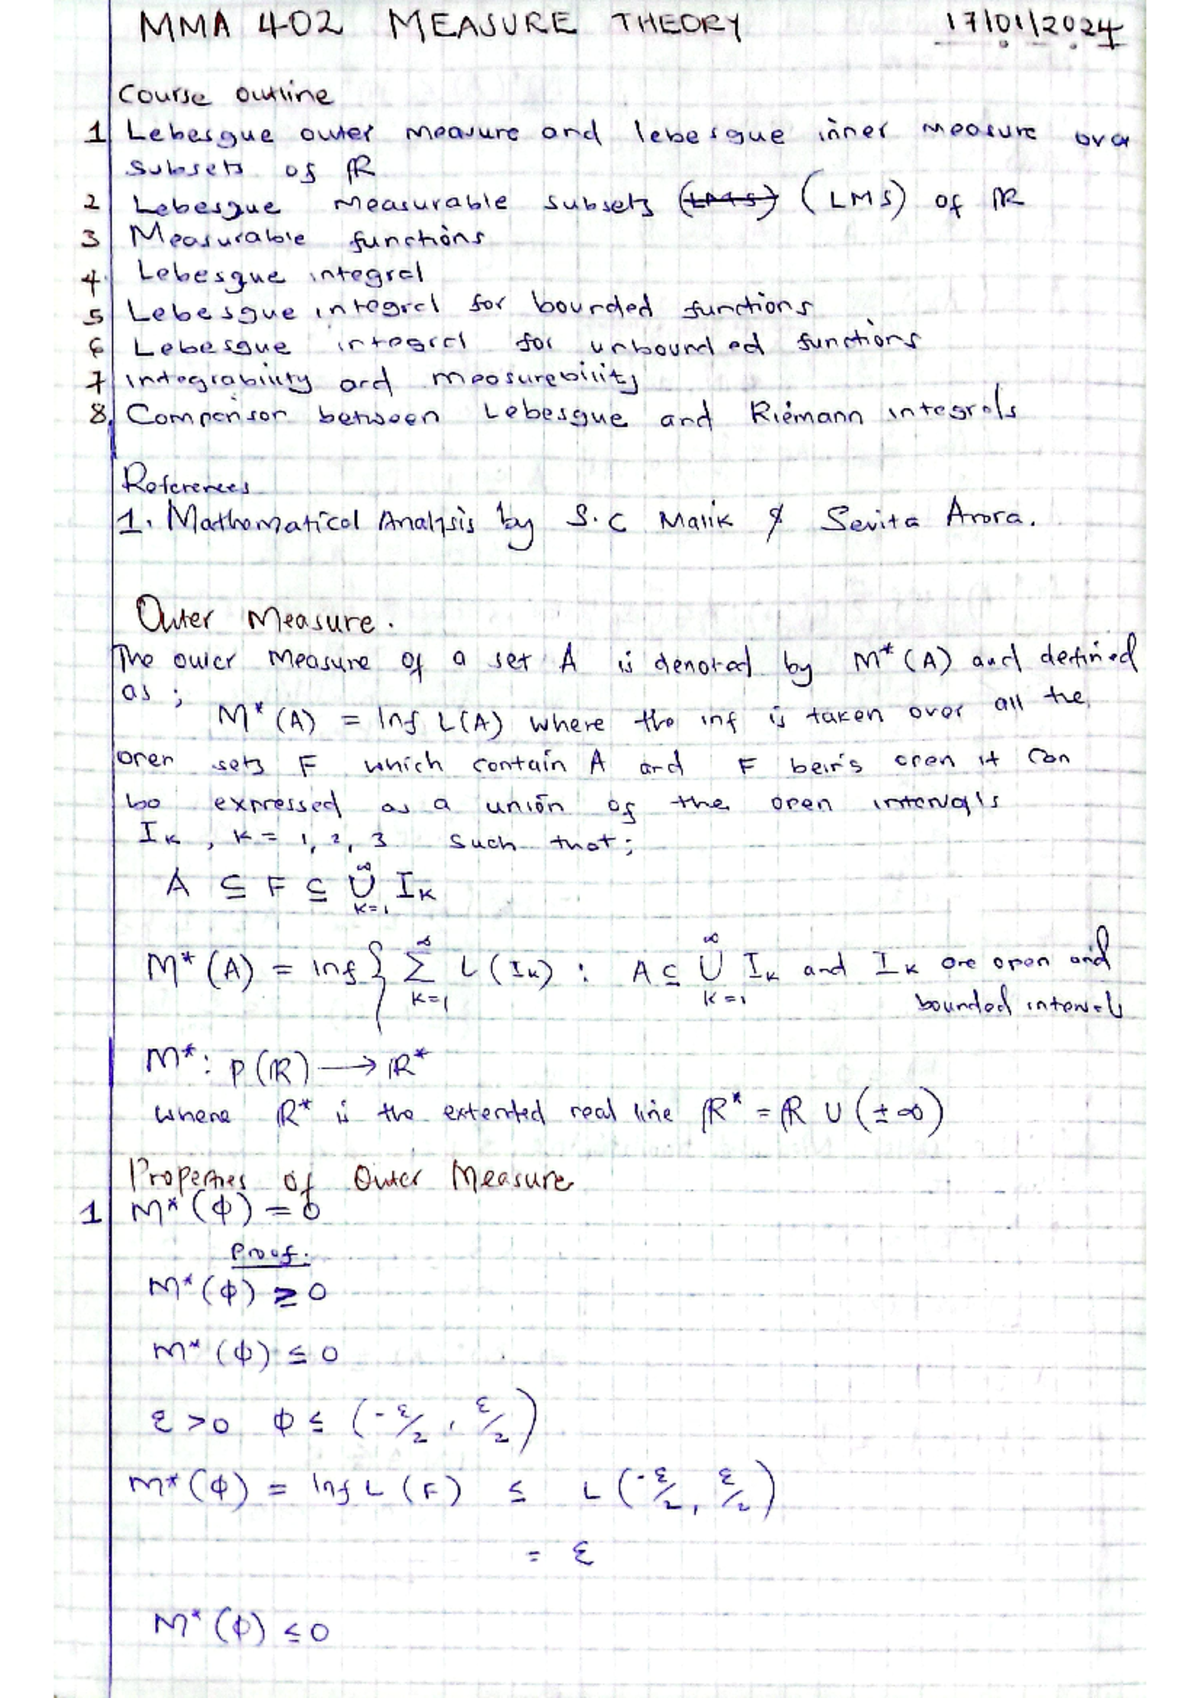 MMA 402 MEASURE THEORY 17/01/2024
Course outline
1 Lebesgue outer measure and lebesgue inner measure over
subsets of ℝ
2 Lebesgue measurable subsets (LMS) (LMS) of ℝ
3 Measurable functions
4. Lebesgue integral
5 Lebesgue integral for bounded functions
6 Lebesgue integral for unbounded functions
7 integrability and measurebility
8. Comparison between Lebesgue and Riemann integrals
References
1. Mathematical Analysis by S.C Malik & Savita Arora.
Outer Measure.
The outer measure of a set A is denoted by M*(A) and defined
as ;
M*(A) = Inf L(A) where the inf is taken over all the
open sets F which contain A and F being open it can
be expressed as a union of the open intervals
Iₖ , k = 1, 2, 3 such that ;
A ⊆ F ⊆ ∞∪k=1 Iₖ
M*(A) = inf { ∞Σk=1 L(Iₖ) : A ⊆ ∞∪k=1 Iₖ and Iₖ are open and
bounded intervals
M* : P(ℝ) → ℝ*
where ℝ* is the extended real line ℝ* = ℝ ∪ (±∞)
Properties of Outer Measure
1 M*(ϕ) = 0
Proof:
M*(ϕ) ≥ 0
M*(ϕ) ≤ 0
ε > 0 ϕ ≤ (-ε/2 , ε/2)
M*(ϕ) = Inf L(F) ≤ L(-ε/2, ε/2)
= ε
M*(ϕ) ≤ 0